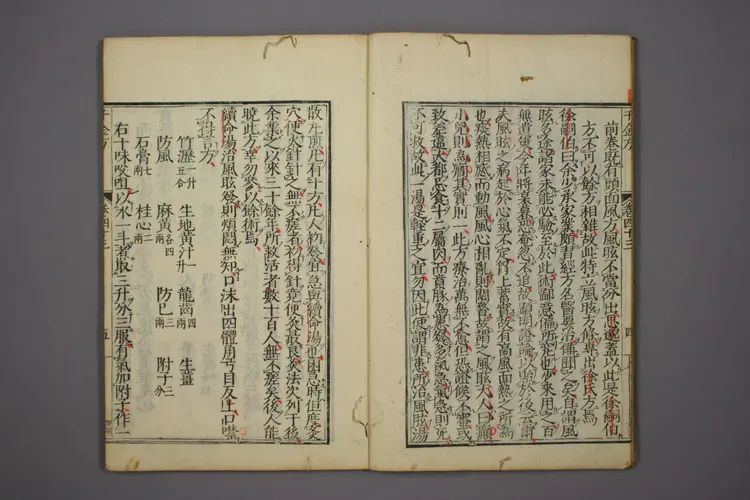 前卷既有頭面風方風眩不當分出思邈蓋以此是徐嗣伯
方不可以餘方相雜故此特立風眩方條專出徐氏方焉
徐嗣伯曰余少承家業頗習經方名醫要治備聞之矣自謂風
眩多途諸家未能必驗至於此術鄙意偏所究也少來用之百
無遺策今年將衰暮恐奄忽不追故顯明證論以貽於後云爾
夫風眩之病起於心氣不定胸上蓄實故有高風面熱之所爲
也痰熱相感而動風風心相亂則悶瞀故謂之風眩大人曰癲
小兒則爲癇其實則一此方療治萬無不愈但恐證候不審或
致差違大都忌食十二屬肉而奔豚爲患發多氣急氣急則死
不可救故此一湯是輕重之宜勿因此便謂非患所治風眩湯
散丸煎凡有十方凡人初發宜急與續命湯也困急時但度灸
穴便火針針之無不瘥者初得針竟便灸最良灸法次列于後
余業之以來三十餘年所救活者數十百人無不瘥矣後人能
曉此方幸勿參以餘術焉
續命湯治風眩發則煩悶無知口沫出四體角弓目反上口噤
不得言方
竹瀝一升五合 生地黃汁一升 龍齒四兩 生薑
防風 麻黃各四兩 防己三兩 附子三分
石膏七兩 桂心二兩
右十味㕮咀以水一斗煮取三升分三服有氣加附子作一
千金方
卷四十三
五